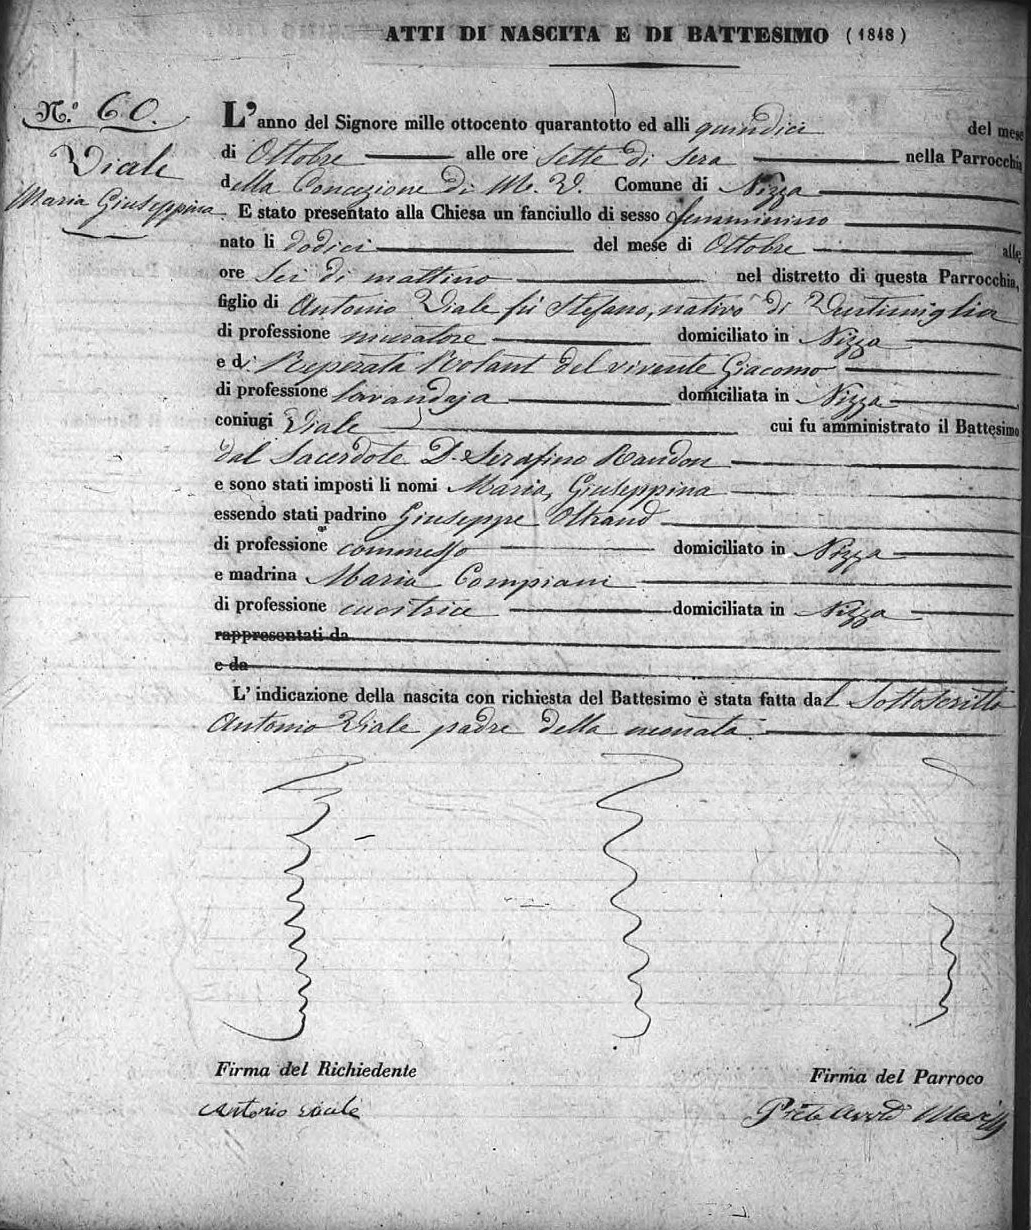 ATTI DI NASCITA E DI BATTESIMO (1848)
N.° 60.
Viale
Maria Giuseppina
L'anno del Signore mille ottocento quarantotto ed alli quindici del mese
di Ottobre alle ore sette di sera nella Parrocchia
della Concezione di M. V. Comune di Nizza
E stato presentato alla Chiesa un fanciullo di sesso femminino
nato li dodici del mese di Ottobre alle
ore sei di mattino nel distretto di questa Parrocchia,
figlio di Antonio Viale fù Stefano, nativo di Ventimiglia
di professione muratore domiciliato in Nizza
e di Reperata Rolant del vivente Giacomo
di professione lavandaja domiciliata in Nizza
coniugi Viale cui fu amministrato il Battesimo
dal Sacerdote D. Serafino Raudon
e sono stati imposti li nomi Maria, Giuseppina
essendo stati padrino Giuseppe
di professione commesso domiciliato in Nizza
e madrina Maria Compiani
di professione cucitrice domiciliata in Nizza
rappresentati da
e da
L'indicazione della nascita con richiesta del Battesimo è stata fatta dal Sottoscritto
Antonio Viale padre della neonata
Firma del Richiedente Firma del Parroco
Antonio viale